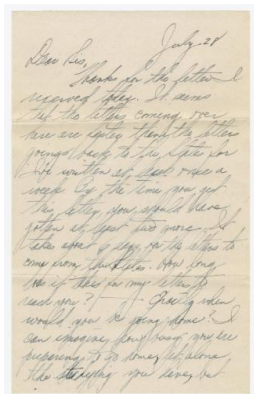 July 28
Dear Sis,
Thanks for the letter I
received today. It seems
that the letters coming over
here are faster than the letters
going back to the States for
I've written at least once a
week. By the time you get
this letter, you should have
gotten at least two more. It
takes about 6 days for the letters to
come from the States. How long
does it take for my letters to
reach you? when
would you be going home? I
can imagine how busy you are
preparing to go home, let alone
the studying you have to